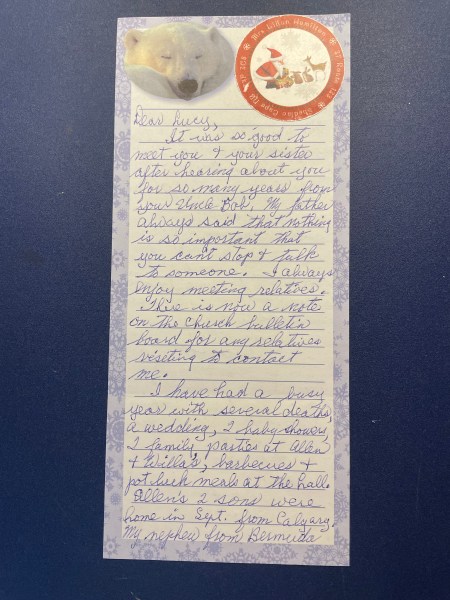 Mrs Lillian Hamilton
Dear Lucy,
It was so good to
meet you & your sister
after hearing about you
for so many years from
your Uncle Bob. My father
always said that nothing
is so important that
you can't stop & talk
to someone. I always
enjoy meeting relatives.
There is now a note
on the church bulletin
board for any relatives
viseting to contact
me.
I have had a busy
year with several deaths,
a wedding, 2 baby showers,
2 family parties at Allen
& Willa's, barbecues &
pot luck meals at the hall.
Allen's 2 sons were
home in Sept. from Calgary.
My nephew from Bermuda